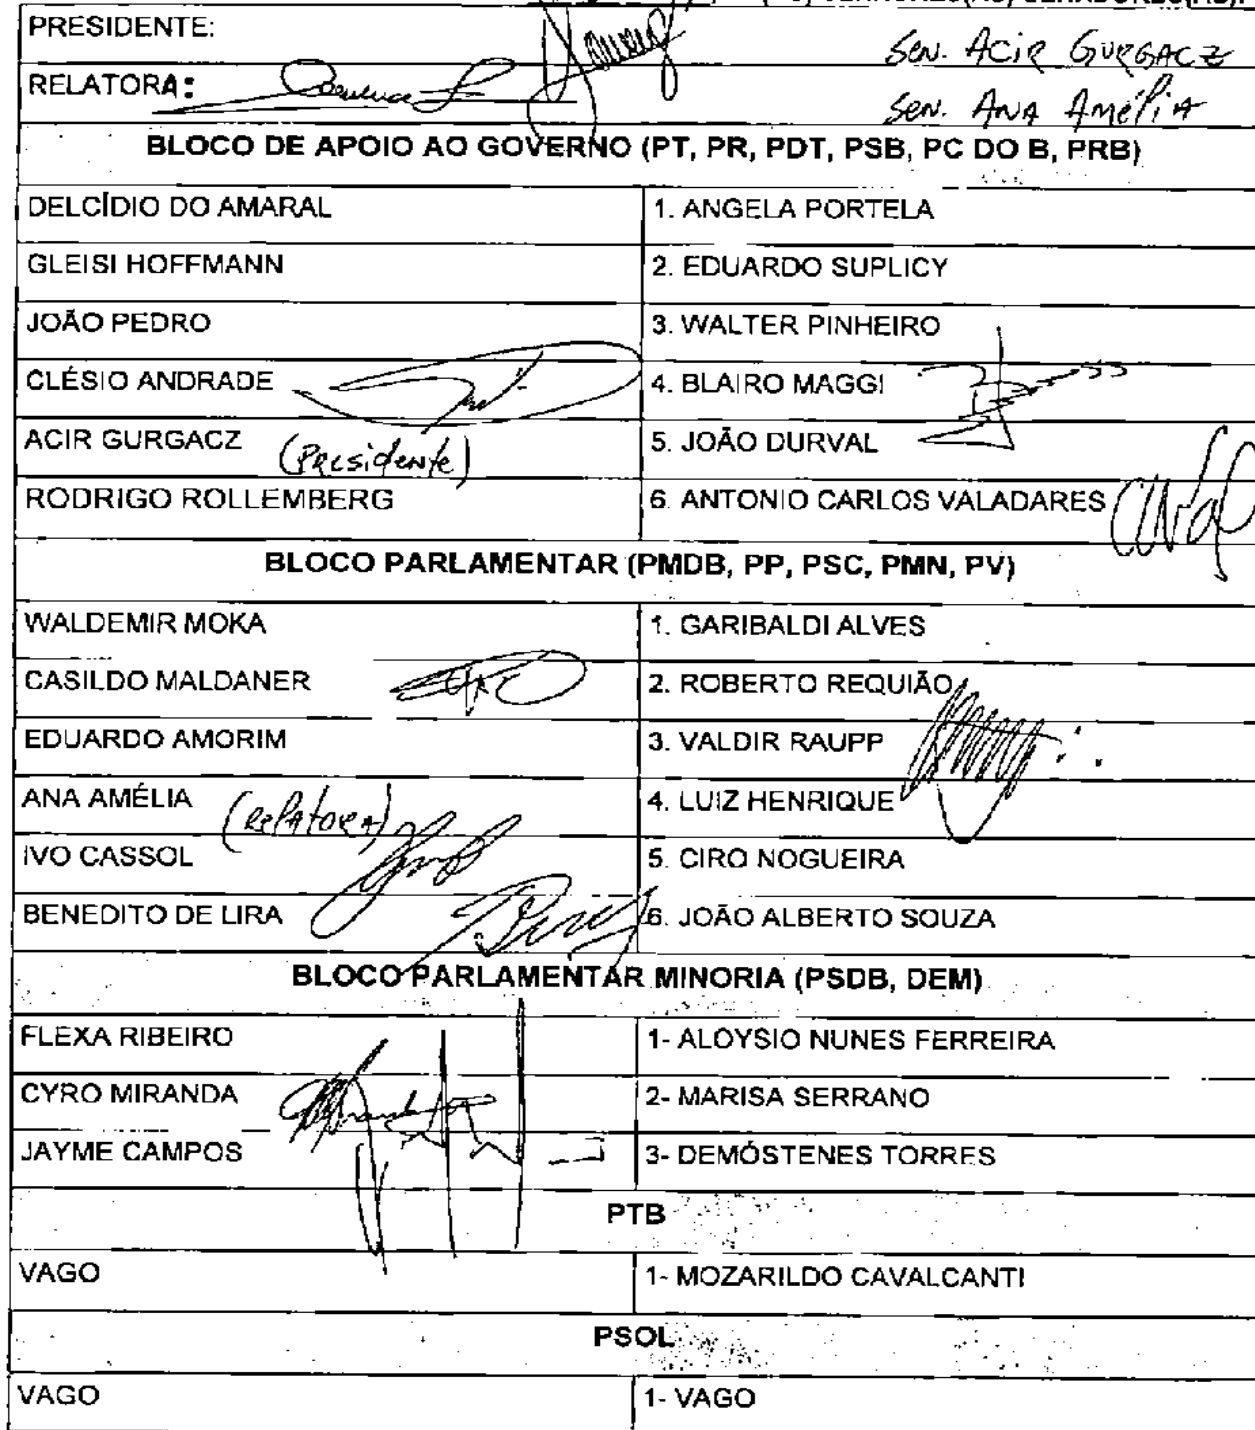 PRESIDENTE: Sen. Acir Gurgacz
RELATORA: Sen. Ana Amélia
BLOCO DE APOIO AO GOVERNO (PT, PR, PDT, PSB, PC DO B, PRB)
DELCÍDIO DO AMARAL 1. ANGELA PORTELA
GLEISI HOFFMANN 2. EDUARDO SUPLICY
JOÃO PEDRO 3. WALTER PINHEIRO
CLÉSIO ANDRADE 4. BLAIRO MAGGI
ACIR GURGACZ (Presidente) 5. JOÃO DURVAL
RODRIGO ROLLEMBERG 6. ANTONIO CARLOS VALADARES
BLOCO PARLAMENTAR (PMDB, PP, PSC, PMN, PV)
WALDEMIR MOKA 1. GARIBALDI ALVES
CASILDO MALDANER 2. ROBERTO REQUIÃO
EDUARDO AMORIM 3. VALDIR RAUPP
ANA AMÉLIA (Relatora) 4. LUIZ HENRIQUE
IVO CASSOL 5. CIRO NOGUEIRA
BENEDITO DE LIRA 6. JOÃO ALBERTO SOUZA
BLOCO PARLAMENTAR MINORIA (PSDB, DEM)
FLEXA RIBEIRO 1- ALOYSIO NUNES FERREIRA
CYRO MIRANDA 2- MARISA SERRANO
JAYME CAMPOS 3- DEMÓSTENES TORRES
PTB
VAGO 1- MOZARILDO CAVALCANTI
PSOL
VAGO 1- VAGO